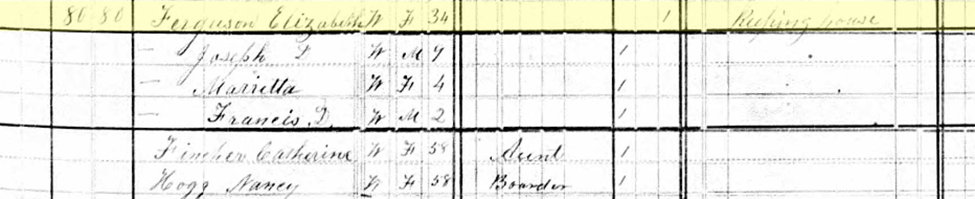 80 80 Ferguson Elizabeth W F 34 1 Keeping house
— Joseph W M 1
— Marietta W F 4 1
— Francis D. W M 2 1
Catherine W F 58 Aunt 1
Hogg Nancy W F 58 Boarder 1